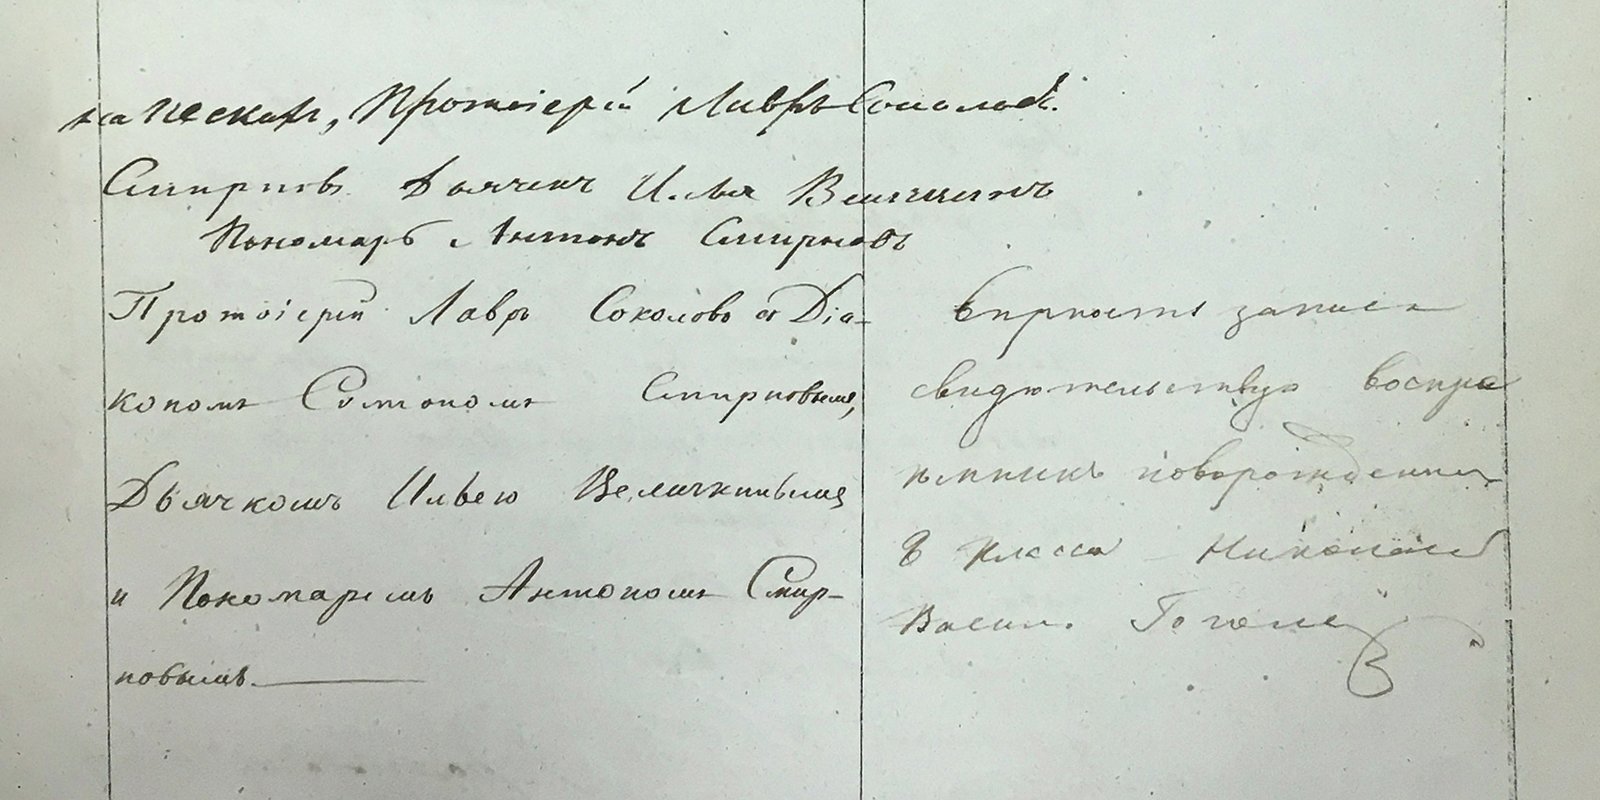 на Пескахъ, Протоіерей Лавръ Соколовъ.
Смирновъ Дьячекъ Илья Величкинъ
Пономарь Антонъ Смирновъ
Протоіерей Лавръ Соколовъ съ Діа-
кономъ Смирновымъ,
Дьячкомъ Ильею Величкинымъ
и Пономаремъ Антономъ Смир-
новымъ.
Вѣрность записи
свидѣтельствую воспри
емникъ новорожденнаго
8 класса Николай
Васил. Гоголь